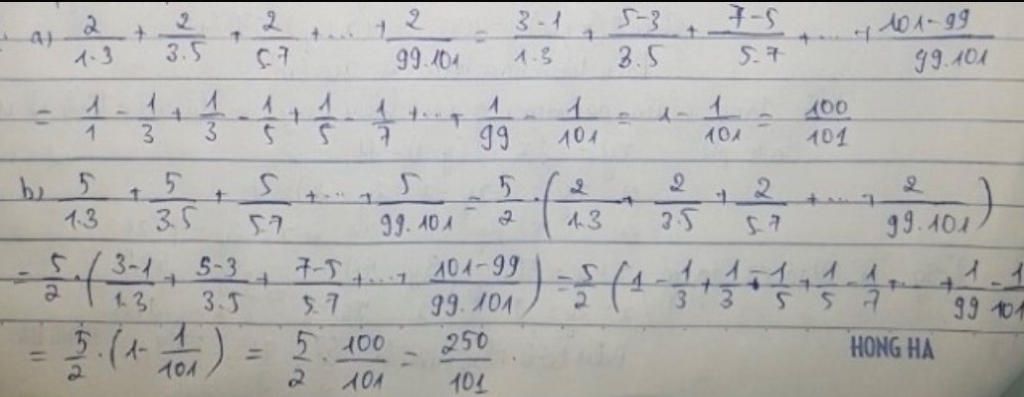 a) 2/1.3 + 2/3.5 + 2/5.7 + ... + 2/99.101 = 3-1/1.3 + 5-3/3.5 + 7-5/5.7 + ... + 101-99/99.101
= 1/1 - 1/3 + 1/3 - 1/5 + 1/5 - 1/7 + ... + 1/99 - 1/101 = 1 - 1/101 = 100/101
b) 5/1.3 + 5/3.5 + 5/5.7 + ... + 5/99.101 = 5/2 . (2/1.3 + 2/3.5 + 2/5.7 + ... + 2/99.101)
= 5/2 . (3-1/1.3 + 5-3/3.5 + 7-5/5.7 + ... + 101-99/99.101) = 5/2 (1 - 1/3 + 1/3 - 1/5 + 1/5 - 1/7 + ... + 1/99 - 1/101
= 5/2 . (1 - 1/101) = 5/2 . 100/101 = 250/101 .
HONG HA